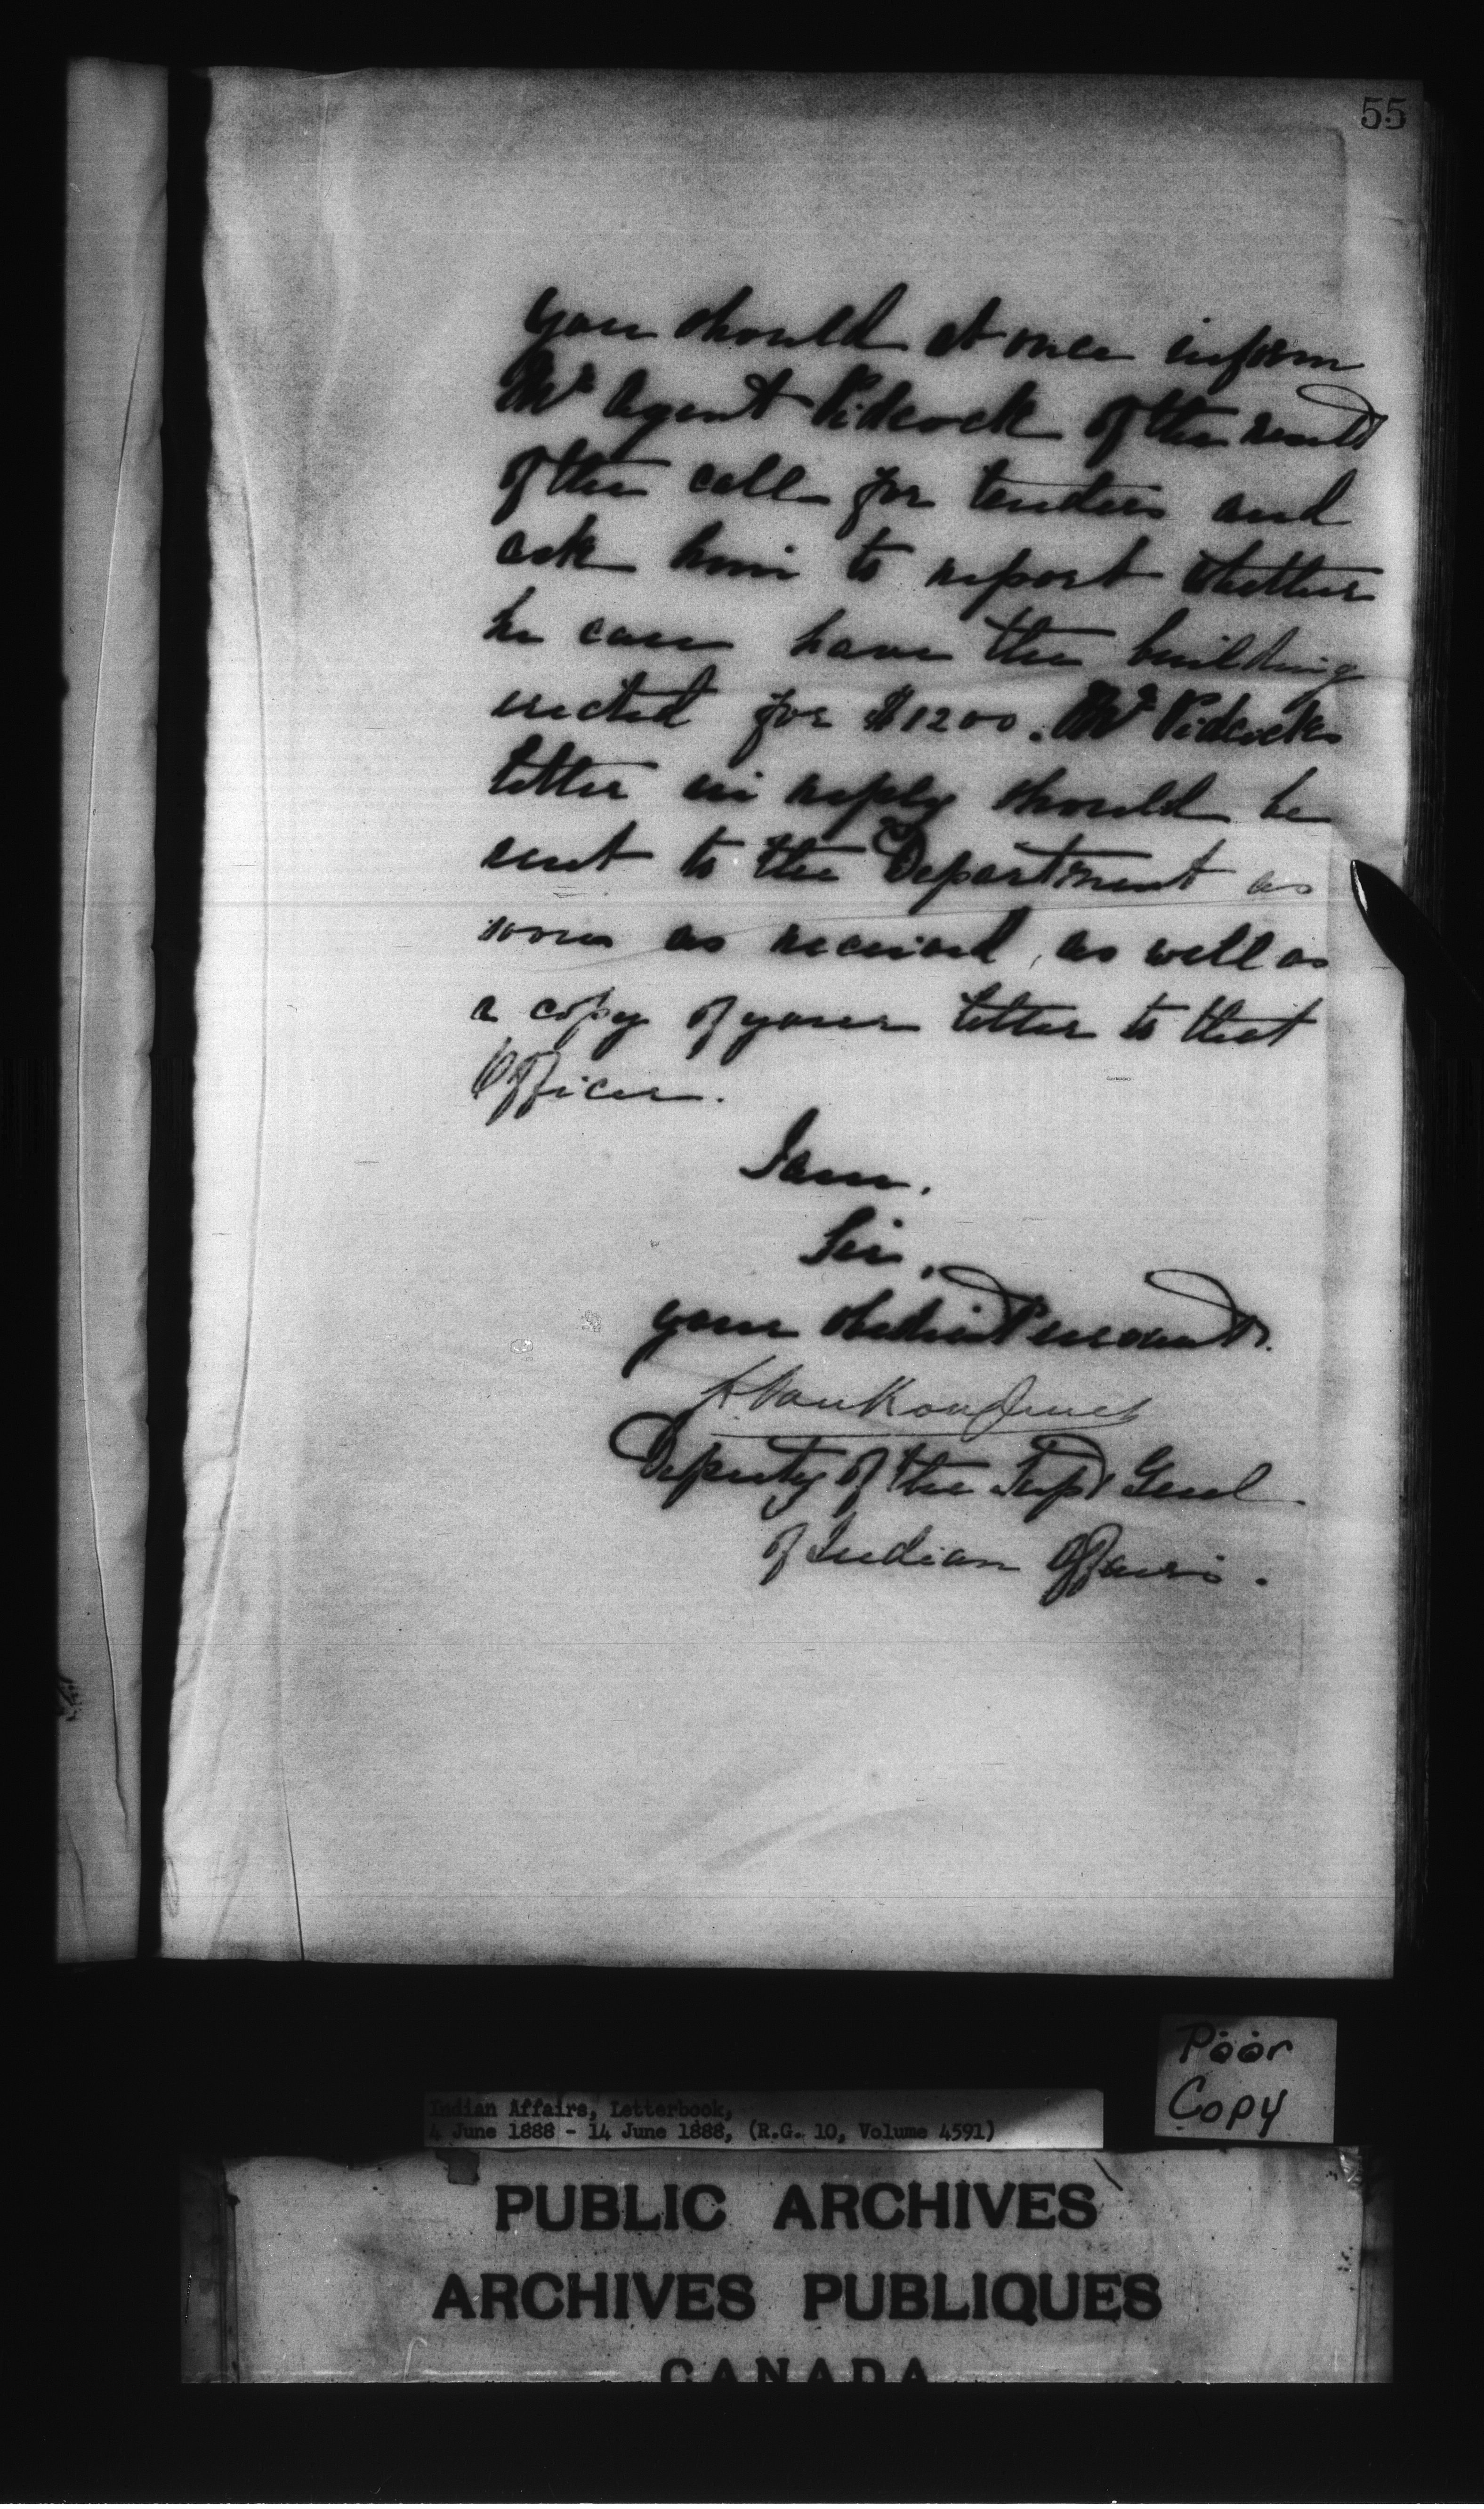 55
you should at once inform
Mr Agent Pidcock of the result
of the call for tenders and
ask him to report whether
he can have the building
erected for $1200. Mr Pidcocks
letter in reply should be
sent to the Department as
soon as received, as well as
a copy of your letter to that
Officer.
I am.
Sir,
your obedient servant.
L. VanKoughnet
Deputy of the Supt Genl
of Indian Affairs.
Poor
Copy
Indian Affairs, Letterbook,
4 June 1888 - 14 June 1888, (R.G. 10, Volume 4591)
PUBLIC ARCHIVES
ARCHIVES PUBLIQUES
CANADA